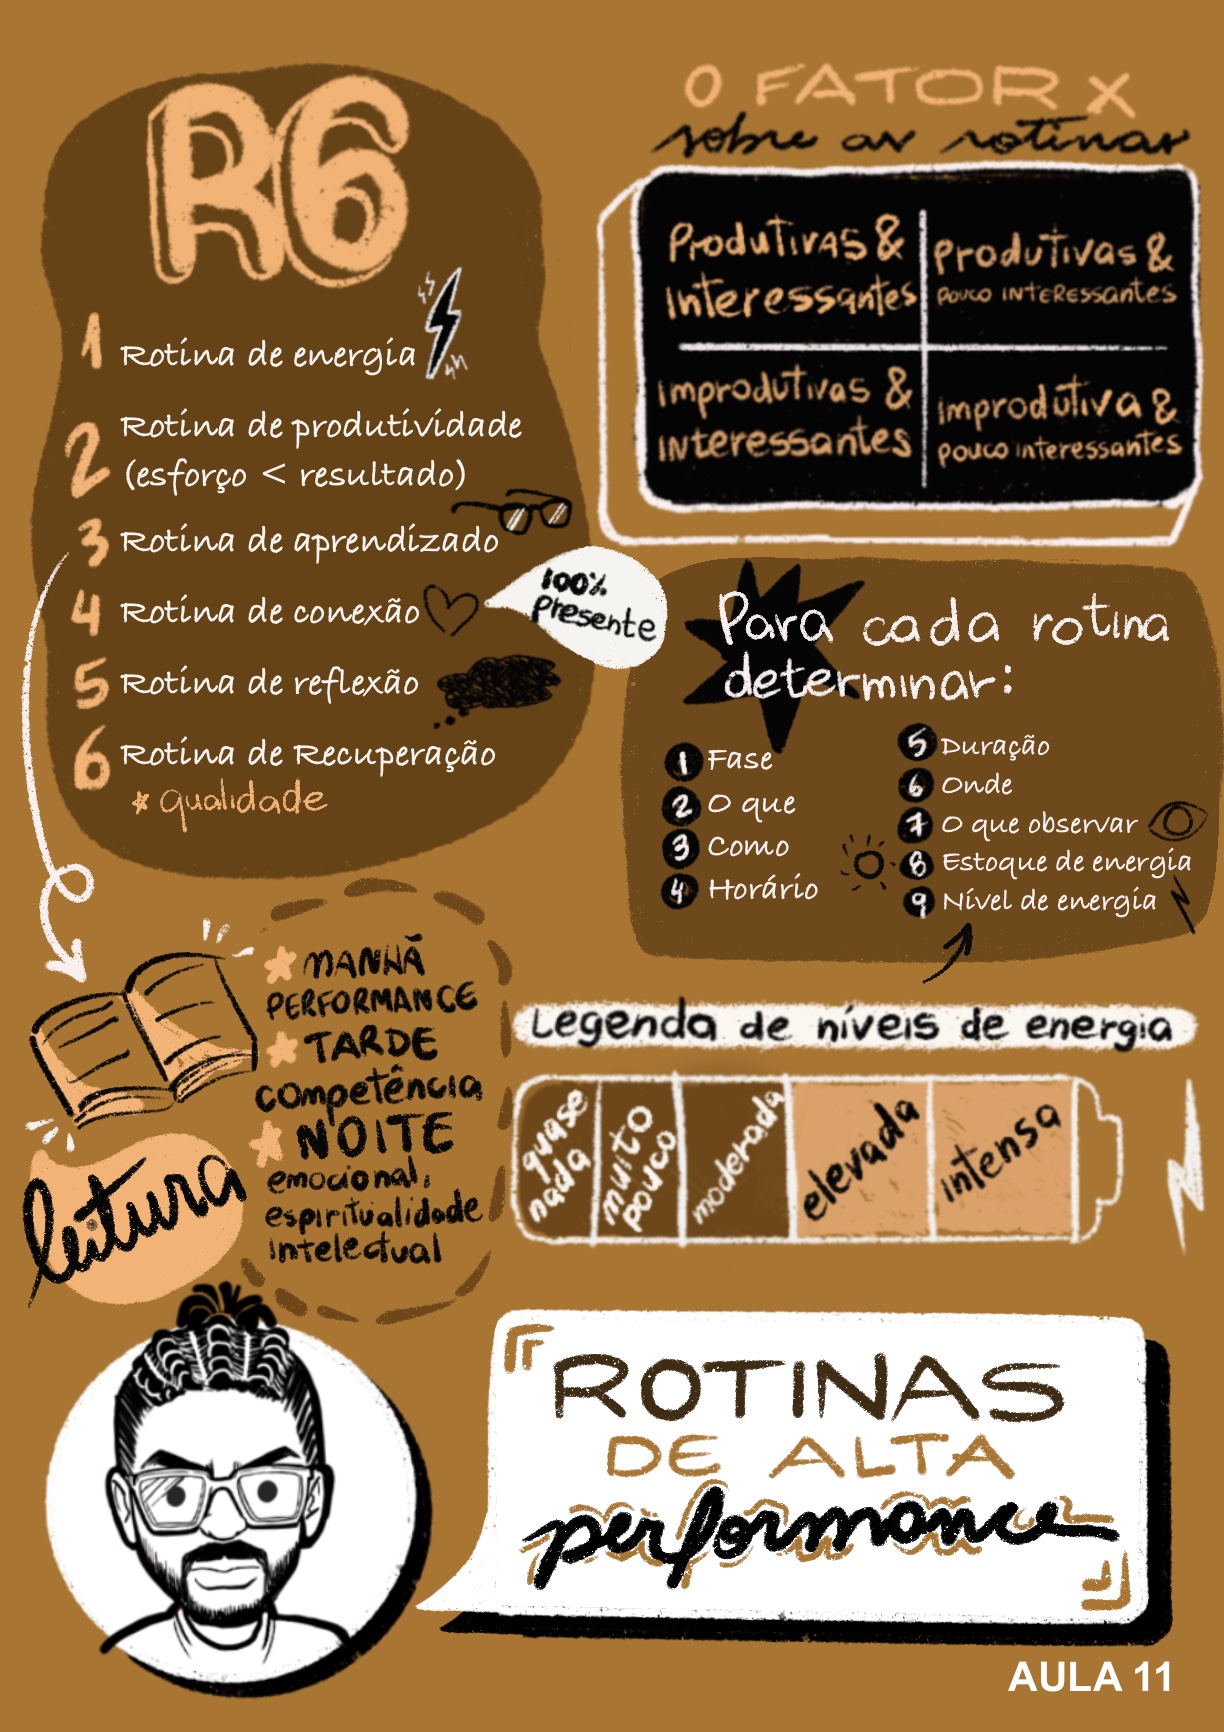 R6
1 Rotina de energia
2 Rotina de produtividade
(esforço < resultado)
3 Rotina de aprendizado
4 Rotina de conexão
100%
presente
5 Rotina de reflexão
6 Rotina de Recuperação
* qualidade
O FATOR X
sobre as rotinas
Produtivas &
Interessantes
Produtivas &
pouco INTERESSANTES
Improdutivas &
Interessantes
Improdutiva &
pouco interessantes
Para cada rotina
determinar:
1 Fase
2 O que
3 Como
4 Horário
5 Duração
6 Onde
7 O que observar
8 Estoque de energia
9 Nível de energia
MANHÃ
PERFORMANCE
TARDE
competência
NOITE
emocional,
espiritualidade
intelectual
leitura
Legenda de níveis de energia
quase
nada
muito
pouco
moderada
elevada
intensa
ROTINAS
DE ALTA
performance
AULA 11